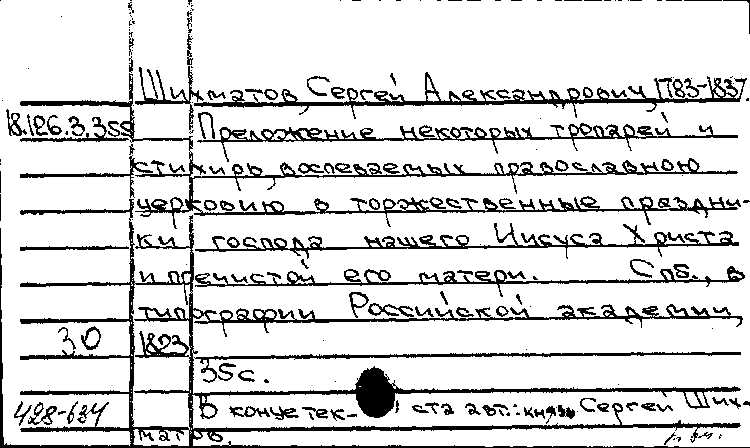 Шихматов, Сергей Александрович, 1783-1837.
18.126.3.355 Преложение некоторых тропарей и
стихиръ, воспеваемых православною
церковию в торжественные праздни-
ки господа нашего Иисуса Христа
и пречистой его матери. Спб., в
типографии Российской академии,
30 1823
35 с.
428-634 В конце тек- ста авт.: князь Сергей Ших-
матов.